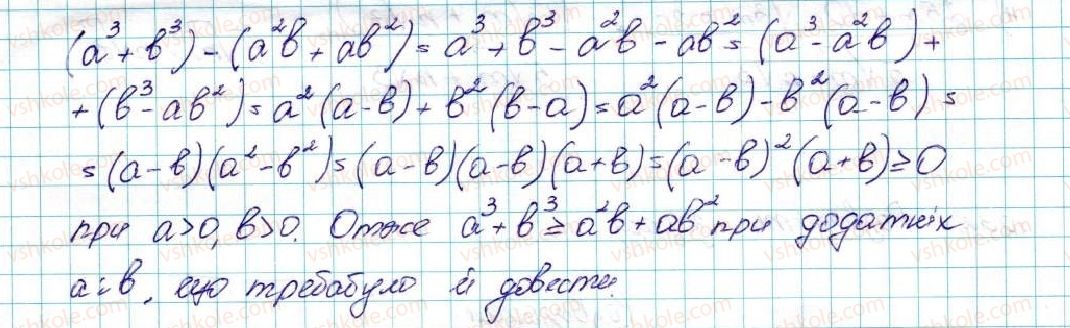 (a³ + b³) - (a²b + ab²) = a³ + b³ - a²b - ab² = (a³ - a²b) +
+ (b³ - ab²) = a²(a - b) + b²(b - a) = a²(a - b) - b²(a - b) =
= (a - b)(a² - b²) = (a - b)(a - b)(a + b) = (a - b)²(a + b) ≥ 0
при a > 0, b > 0. Отже a³ + b³ ≥ a²b + ab² при додатніх
a i b, що треба було й довести.